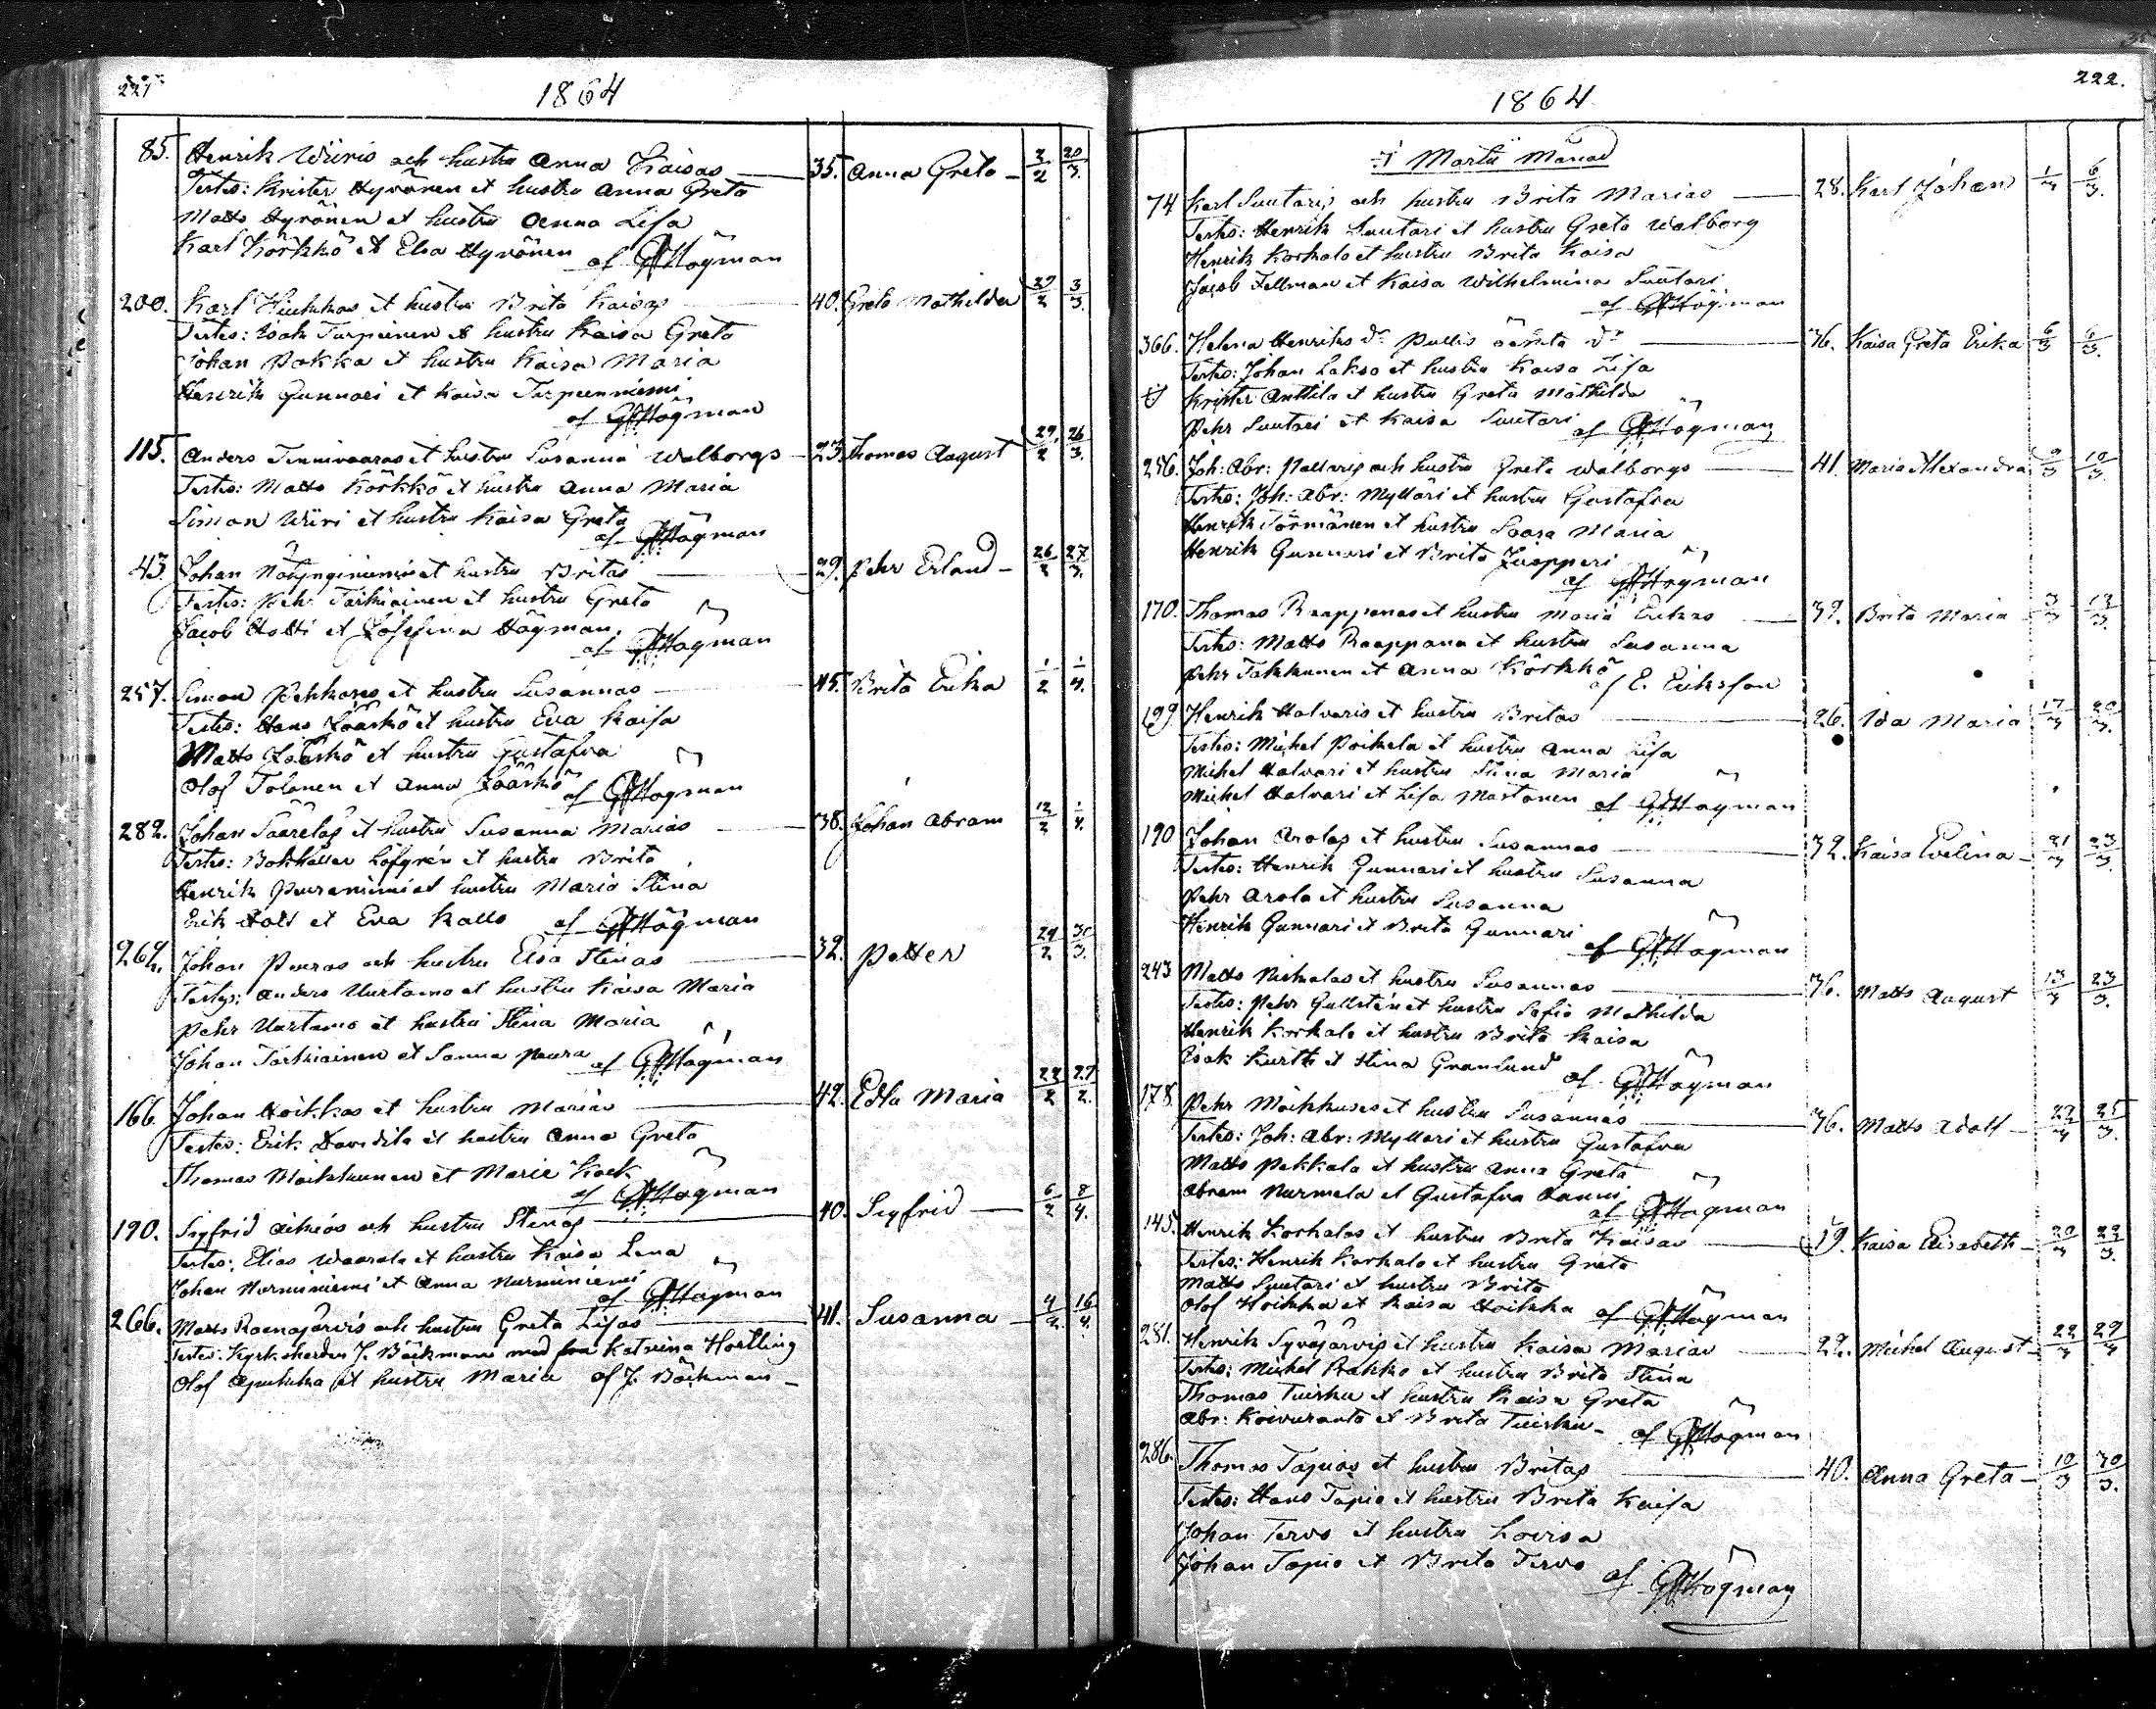 221
1864
85. Henrik Wiiris och hustru Anna Kaisas — 35. Anna Greta — 3/2 20/3.
Testes: Krister Hyvönen et hustru Anna Greta
Matts Hyvönen et hustru Anna Lisa
Karl Körkkö et Elsa Hyvönen af GFHögman
200. Karl Hiukkas et hustru Brita Kaisas — 40. Greta Mathilda 29/2 3/3.
Testes: Isak Turpeinen et hustru Kaisa Greta
Johan Pokka et hustru Kaisa Maria
Henrik Gunnari et Kaisa Turpeenniemi
af GFHögman
115. Anders Tennivaaras et hustru Susanna Walborgs — 23. Thomas August 29/2 26/3.
Testes: Matts Körkkö et hustru Anna Maria
Simon Wiiri et hustru Kaisa Greta
af GFHögman
43. Johan et hustru Britas — 29. Pehr Erland — 26/2 27/3.
Testes: Pehr Tarkiainen et hustru Greta
Jacob Hotti et Josefina Högman.
af GFHögman
257. Simon Pekkas et hustru Susannas — 45. Brita Erika 1/2 1/4.
Testes: Hans Jääskö et hustru Eva Kaisa
Matts Jääskö et hustru Gustafva
Olof Tolonen et Anna Jääskö af GFHögman
282. Johan Saarelas et hustru Susanna Marias — 38. Johan Abram 12/2 1/4.
Testes: Bokhåller Löfgren et hustru Brita
Henrik Peuraniemi et hustru Maria Stina
Erik et Eva Kallo af GFHögman
262. Johan Peuras och hustru Elsa Stinas — 32. Petter 29/2 30/3.
Testes: Anders Uurtamo et hustru Kaisa Maria
Pehr Uurtamo et hustru Stina Maria
Johan Tarkiainen et Sanna Peura af GFHögman
166. Johan Hoikkas et hustru Marias — 42. Edla Maria 22/2 27/2.
Testes: Erik Davidila et hustru Anna Greta
Thomas Moikkunen et Maria Kock
af GFHögman
190. Sigfrid Aikios och hustru Stinas — 40. Sigfrid — 6/2 8/4.
Testes: Elias Waarala et hustru Kaisa Lena
Johan Nurminiemi et Anna Nurminiemi
af GFHögman
266. Matts Raanojärvis och hustru Greta Lisas — 41. Susanna — 4/2 16/4.
Testes: Kyrkoherden J. Bäckman med fru Katrina Hortling
Olof Apukka et hustru Maria af J. Bäckman —
222.
1864
i Martii Månad
74 Karl Suutaris och hustru Brita Marias — 28. Karl Johan 1/3 6/3.
Testes: Henrik Suutari et hustru Greta Walborg
Henrik Korkalo et hustru Brita Kaisa
Jacob Fellman et Kaisa Wilhelmina Suutari
af GFHögman
366. Helena Henriks dr Pullis oäkta dr — 36. Kaisa Greta Erika 6/3 6/3.
Testes: Johan Lakso et hustru Kaisa Lisa
Krister Anttila et hustru Greta Mathilda
Pehr Suutari et Kaisa Suutari af GFHögman
256. Joh: Abr: Pallaris och hustru Greta Walborgs — 41. Maria Alexandra 9/3 10/3.
Testes: Joh: Abr: Mylläri et hustru Gustafva
Henrik Törmänen et hustru Saara Maria
Henrik Gunnari et Brita Juopperi
af GFHögman
170. Thomas Raappanas et hustru Maria Erikas — 39. Brita Maria 3/3 13/3.
Testes: Matts Raappana et hustru Susanna
Pehr Takkunen et Anna Körkkö
af E. Eriksson
199. Henrik Halvaris et hustru Britas — 26. Ida Maria 17/3 20/3.
Testes: Michel Poikela et hustru Anna Lisa
Michel Halvari et hustru Stina Maria
Michel Halvari et Lisa Martanen af GFHögman
190 Johan Arolas et hustru Susannas — 32. Kaisa Evelina — 21/3 23/3.
Testes: Henrik Gunnari et hustru Susanna
Pehr Arola et hustru Susanna
Henrik Gunnari et Brita Gunnari
af GFHögman
243 Matts Niskalas et hustru Susannas — 36. Matts August 13/3 23/3.
Testes: Pehr Gullsten et hustru Sofia Mathilda
Henrik Korkalo et hustru Brita Kaisa
Isak Kurtti et Stina Granlund
af GFHögman
178. Pehr Moikkuses et hustru Susannas — 36. Matts Adolf — 22/3 25/3.
Testes: Joh: Abr: Myllari et hustru Gustafva
Matts Pekkala et hustru Anna Greta
Abram Nurmela et Gustafva Lanui
af GFHögman
145. Henrik Korkalos et hustru Brita Kaisas — 19. Kaisa Elisabeth — 20/3 29/3.
Testes: Henrik Korkalo et hustru Greta
Matts Suutari et hustru Brita
Olof Hoikka et Kaisa Hoikka af GFHögman
281. Henrik Syväjärvis et hustru Kaisa Marias — 22. Michel August — 22/3 29/3
Testes: Michel Rakko et hustru Brita Stina
Thomas Tuisku et hustru Kaisa Greta
Abr: Koivuranta et Brita Tuisku — af GFHögman
286. Thomas Tapios et hustru Britas — 40. Anna Greta — 10/3 30/3.
Testes: Hans Tapio et hustru Brita Kaisa
Johan Tervo et hustru Lovisa
Johan Tapio et Brita Tervo af GFHögman